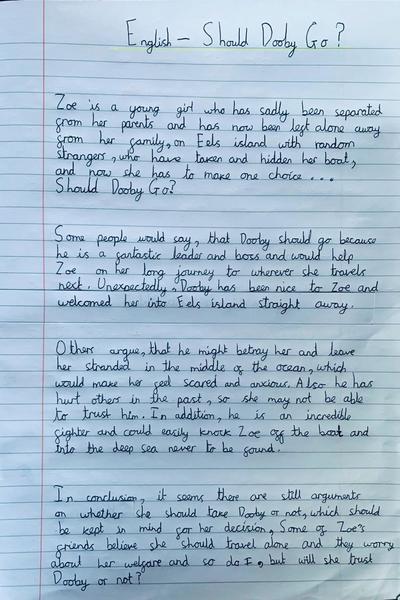 English - Should Dooby Go?
Zoe is a young girl who has sadly been separated
from her parents and has now been left alone away
from her family, on Eels island with random
strangers, who have taken and hidden her boat,
and now she has to make one choice ...
Should Dooby Go?
Some people would say, that Dooby should go because
he is a fantastic leader and boss and would help
Zoe on her long journey to wherever she travels
next. Unexpectedly, Dooby has been nice to Zoe and
welcomed her into Eels island straight away.
Others argue, that he might betray her and leave
her stranded in the middle of the ocean, which
would make her feel scared and anxious. Also he has
hurt others in the past, so she may not be able
to trust him. In addition, he is an incredible
fighter and could easily knock Zoe off the boat and
into the deep sea never to be found.
In conclusion, it seems there are still arguments
on whether she should take Dooby or not, which should
be kept in mind for her decision. Some of Zoe's
friends believe she should travel alone and they worry
about her welfare and so do I, but will she trust
Dooby or not?